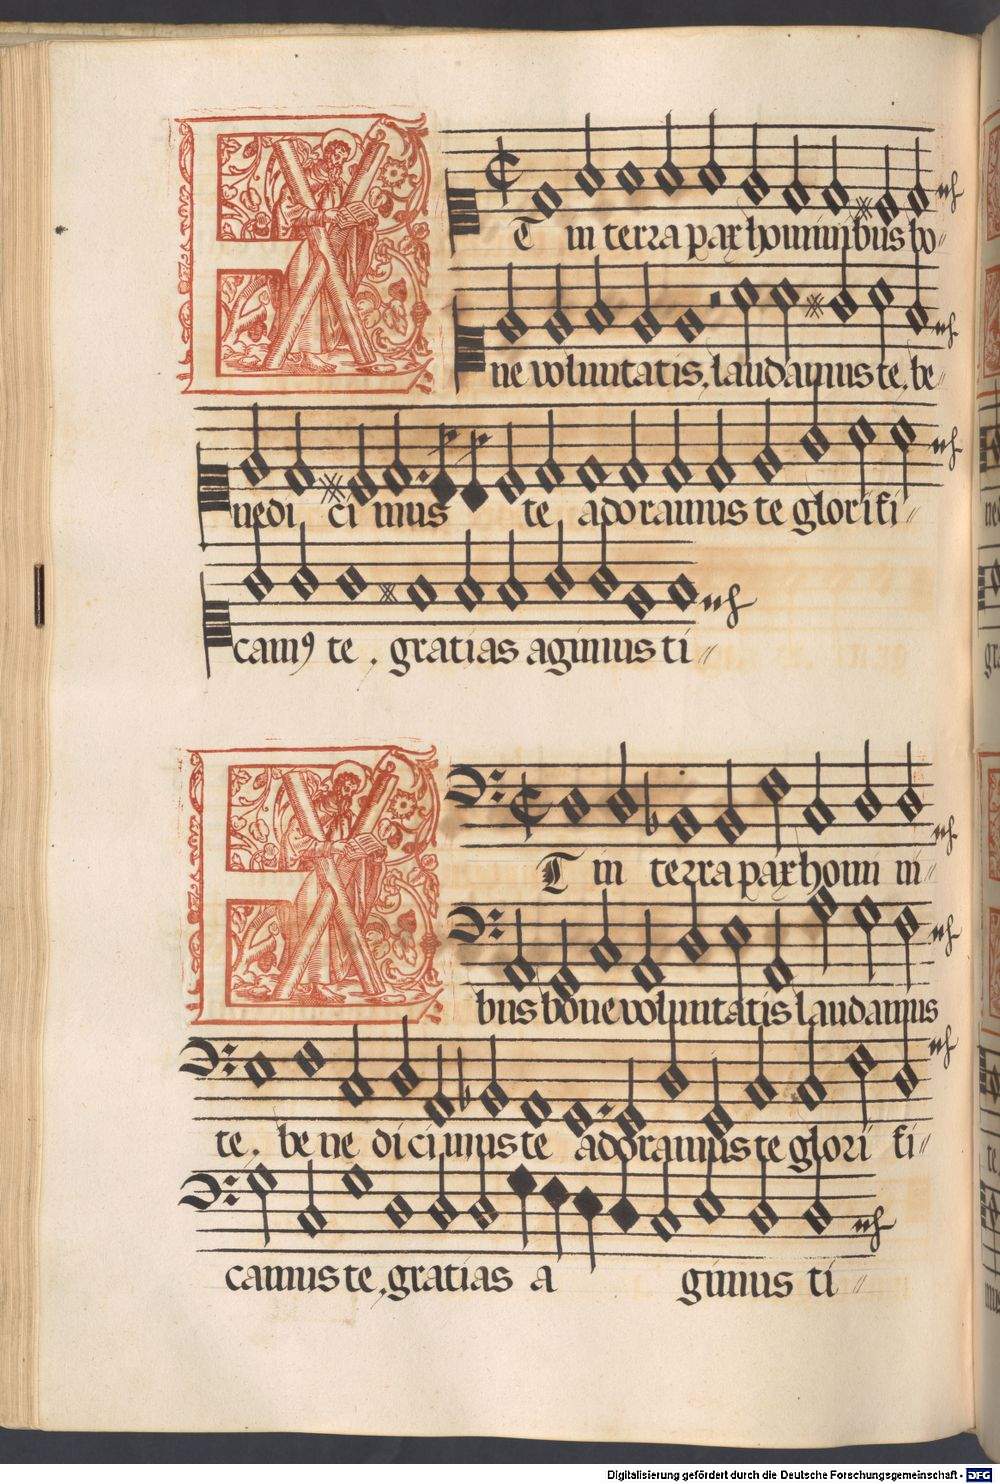 ET in terra pax hominibus bo//
ne voluntatis, laudamus te, be//
nedi ci mus te, adoramus te glorifi//
camꝯ te, gratias agimus ti//
ET in terra pax homi ni//
bus bone voluntatis laudamus
te, be ne dicimus te adoramus te glori fi//
camus te, gratias a gimus ti//
Digitalisierung gefördert durch die Deutsche Forschungsgemeinschaft - DFG